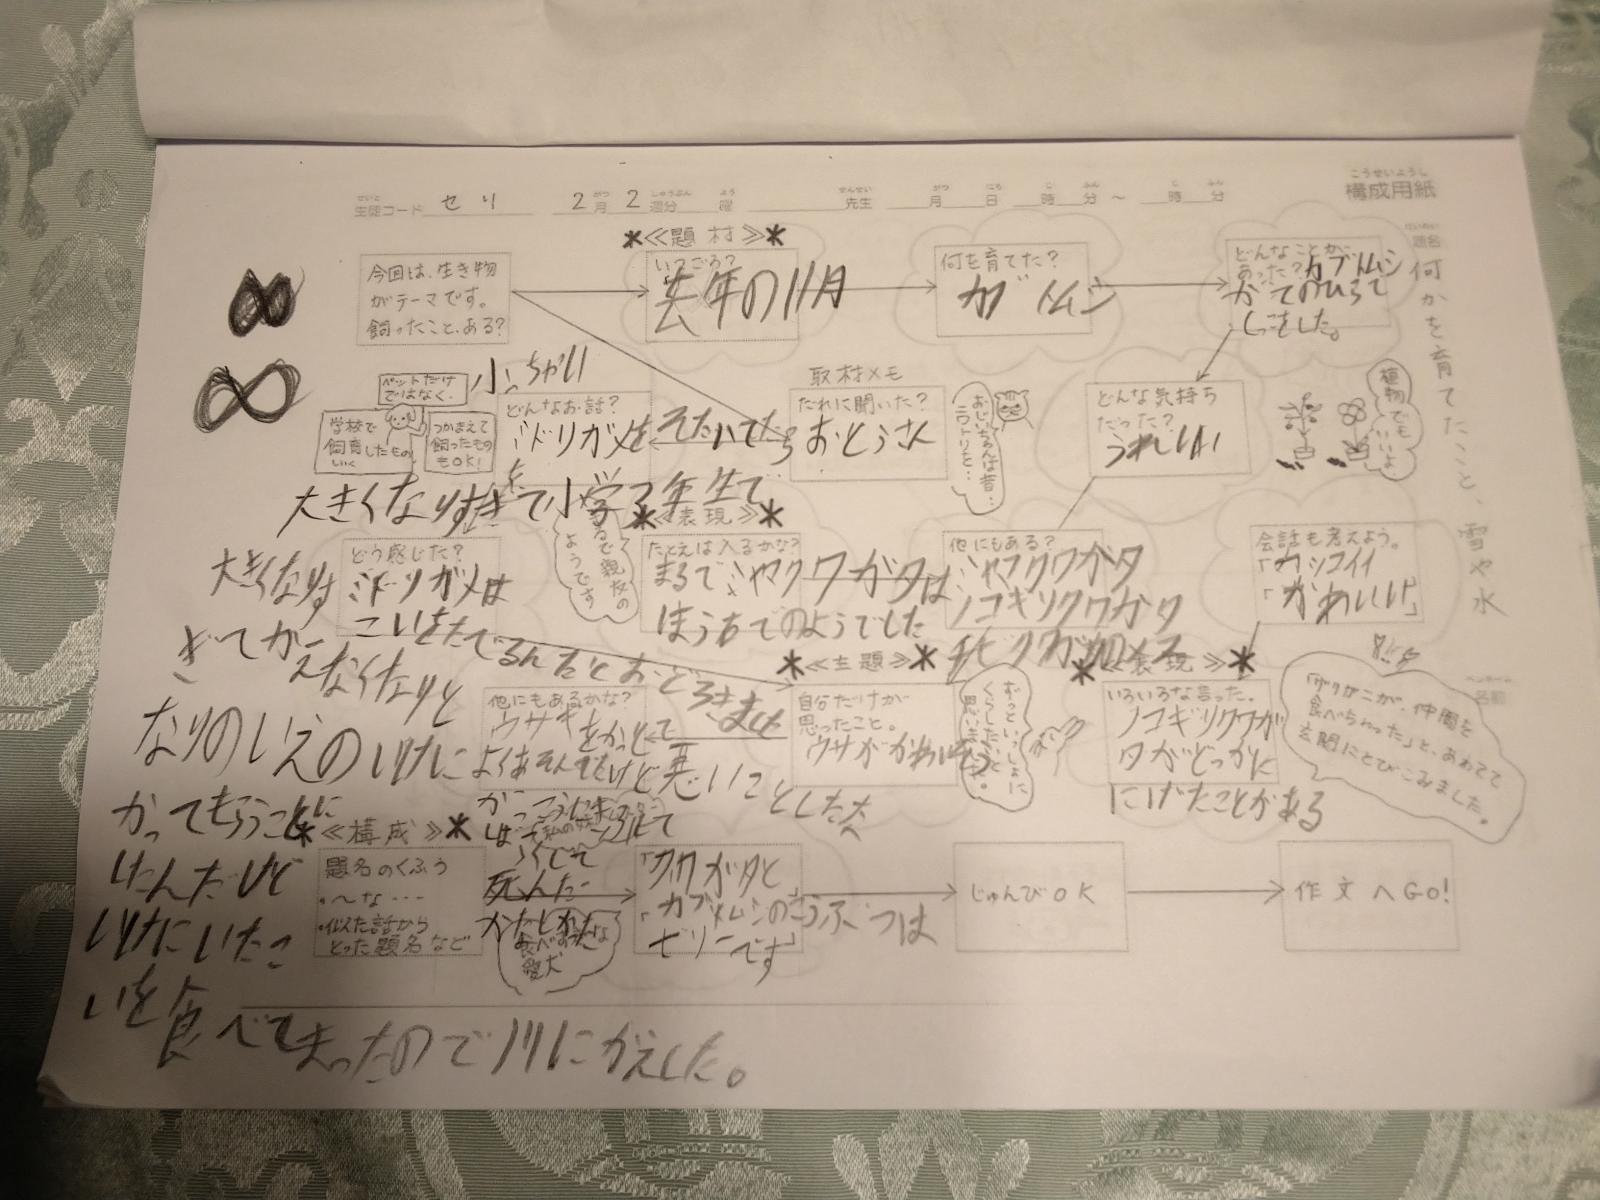 構成用紙
こうせいようし
生徒コード セリ 2月2週分 曜 先生 月 日 時 分 ～ 時 分
題名
何かを育てたこと、雪や水
名前
今回は、生き物
がテーマです。
飼ったこと、ある?
＊≪題材≫＊
いつごろ?
去年の11月
何を育てた?
カブトムシ
どんなことが
あった?カブトムシ
がてのひらで
しっこをした。
どんな気持ち
だった?
うれしい
植物でも
いいよ
ペットだけ
ではなく、
学校で
飼育したもの
つかまえて
飼ったもの
もOK!
取材メモ
だれに聞いた?
おとうさん
おじいちゃんは昔…
ニワトリを…
小っちゃい
どんなお話?
ミドリガメを
そだてたら
大きくなりすぎて小学2年生で
どう感じた?
ミドリガメは
こいをたべるんだとおどろきました
大きくなりす
ぎてか
えなくなりと
なりのいえのいけに
かってもらうことに
したんだけど
いけにいたこ
いを食べてしまったので川にかえした。
＊≪表現≫＊
たとえは入るかな?
まるでミヤマクワガタは
ほうせきのようでした
まるで親友の
ようです
他にもある?
ミヤマクワガタ
ノコギリクワガタ
会話も考えよう。
「カッコイイ」
「かわいい」
＊≪主題≫＊
自分だけが
思ったこと。
ウサギがかわいそう
ずっといっしょに
くらしたいと
思いました。
他にもあるかな?
ウサギをかって
よくあそんでたけど悪いことをした
死んだ
＊≪表現≫＊
いろいろな言った。
ノコギリクワガ
タがどっかに
にげたことがある
「ザリガニが、仲間を
食べちゃった」と、あわてて
玄関にとびこみました。
＊≪構成≫＊
題名のくふう
・～な…
・似た話から
とった題名など
食べすぎな
愛犬
「クワガタと
カブトムシのこうぶつは
ゼリーです」
じゅんびOK
作文へGO!